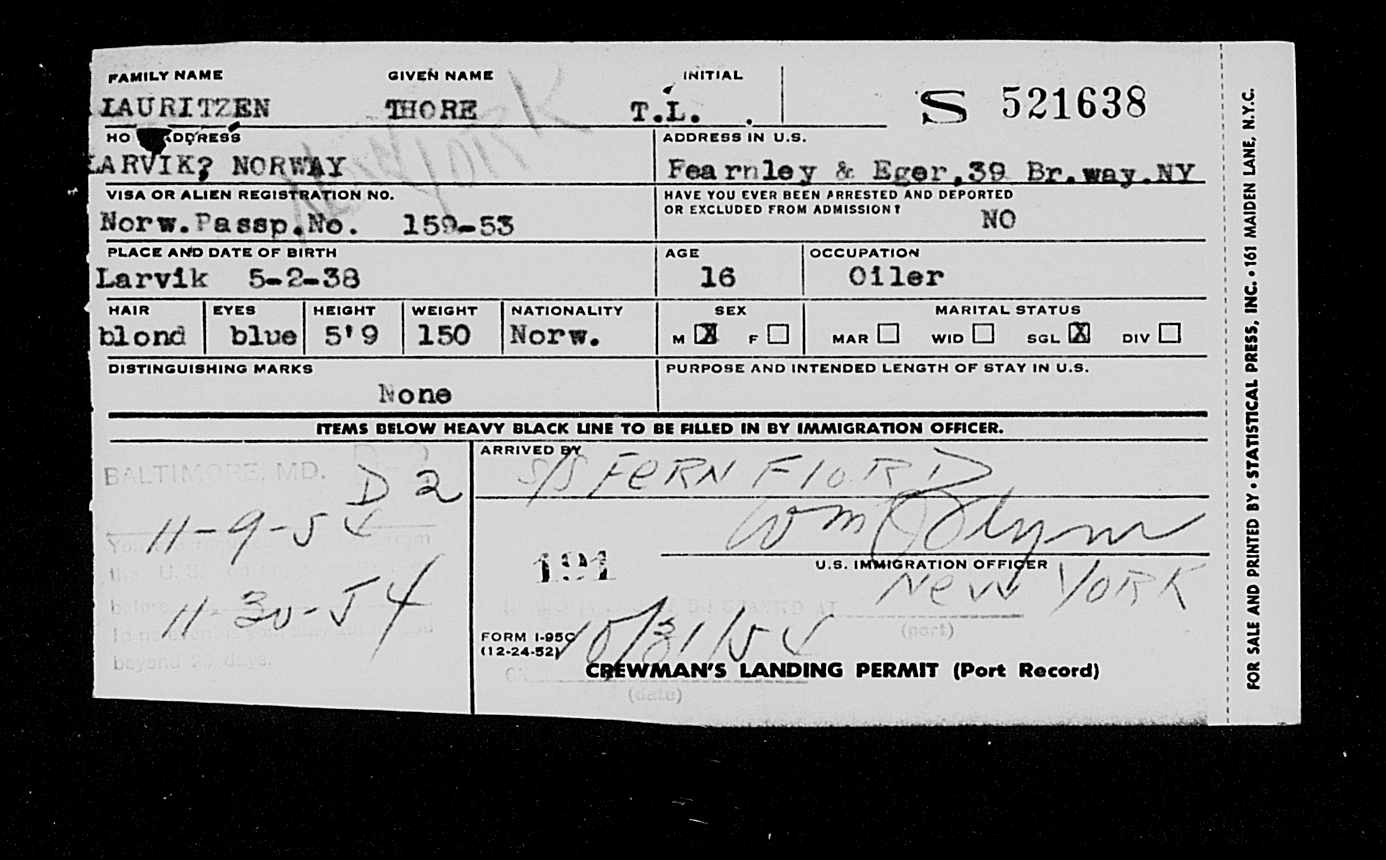 FAMILY NAME GIVEN NAME INITIAL
LAURITZEN THORE T.L. S 521638
HO ADDRESS ADDRESS IN U.S.
LARVIK? NORWAY Fearnley & Eger,39 Br.way.NY
New York
VISA OR ALIEN REGISTRATION NO. HAVE YOU EVER BEEN ARRESTED AND DEPORTED
OR EXCLUDED FROM ADMISSION?
Norw.Passp.No. 159-53 NO
PLACE AND DATE OF BIRTH AGE OCCUPATION
Larvik 5-2-38 16 Oiler
HAIR EYES HEIGHT WEIGHT NATIONALITY SEX MARITAL STATUS
blond blue 5'9 150 Norw. M X F MAR WID SGL X DIV
DISTINGUISHING MARKS PURPOSE AND INTENDED LENGTH OF STAY IN U.S.
None
ITEMS BELOW HEAVY BLACK LINE TO BE FILLED IN BY IMMIGRATION OFFICER.
ARRIVED BY
S/S FERN FIORD
BALTIMORE, MD.
D 2
11-9-54
11-30-54
beyond 29 days.
Wm Flynn
191
U.S. IMMIGRATION OFFICER
New YORK
(port)
FORM I-95C
(12-24-52)
10/31/54
CREWMAN'S LANDING PERMIT (Port Record)
(date)
FOR SALE AND PRINTED BY • STATISTICAL PRESS, INC. • 161 MAIDEN LANE, N.Y.C.